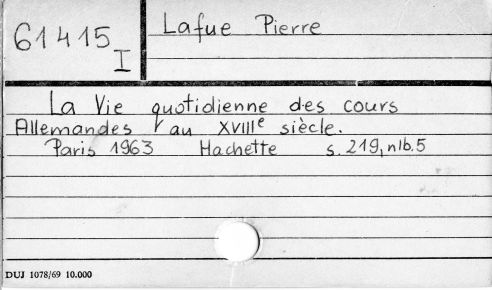 61415
I
Lafue Pierre
La Vie quotidienne des cours
Allemandes au XVIIIe siècle.
Paris 1963 Hachette s. 219, nlb. 5
DUJ 1078/69 10.000